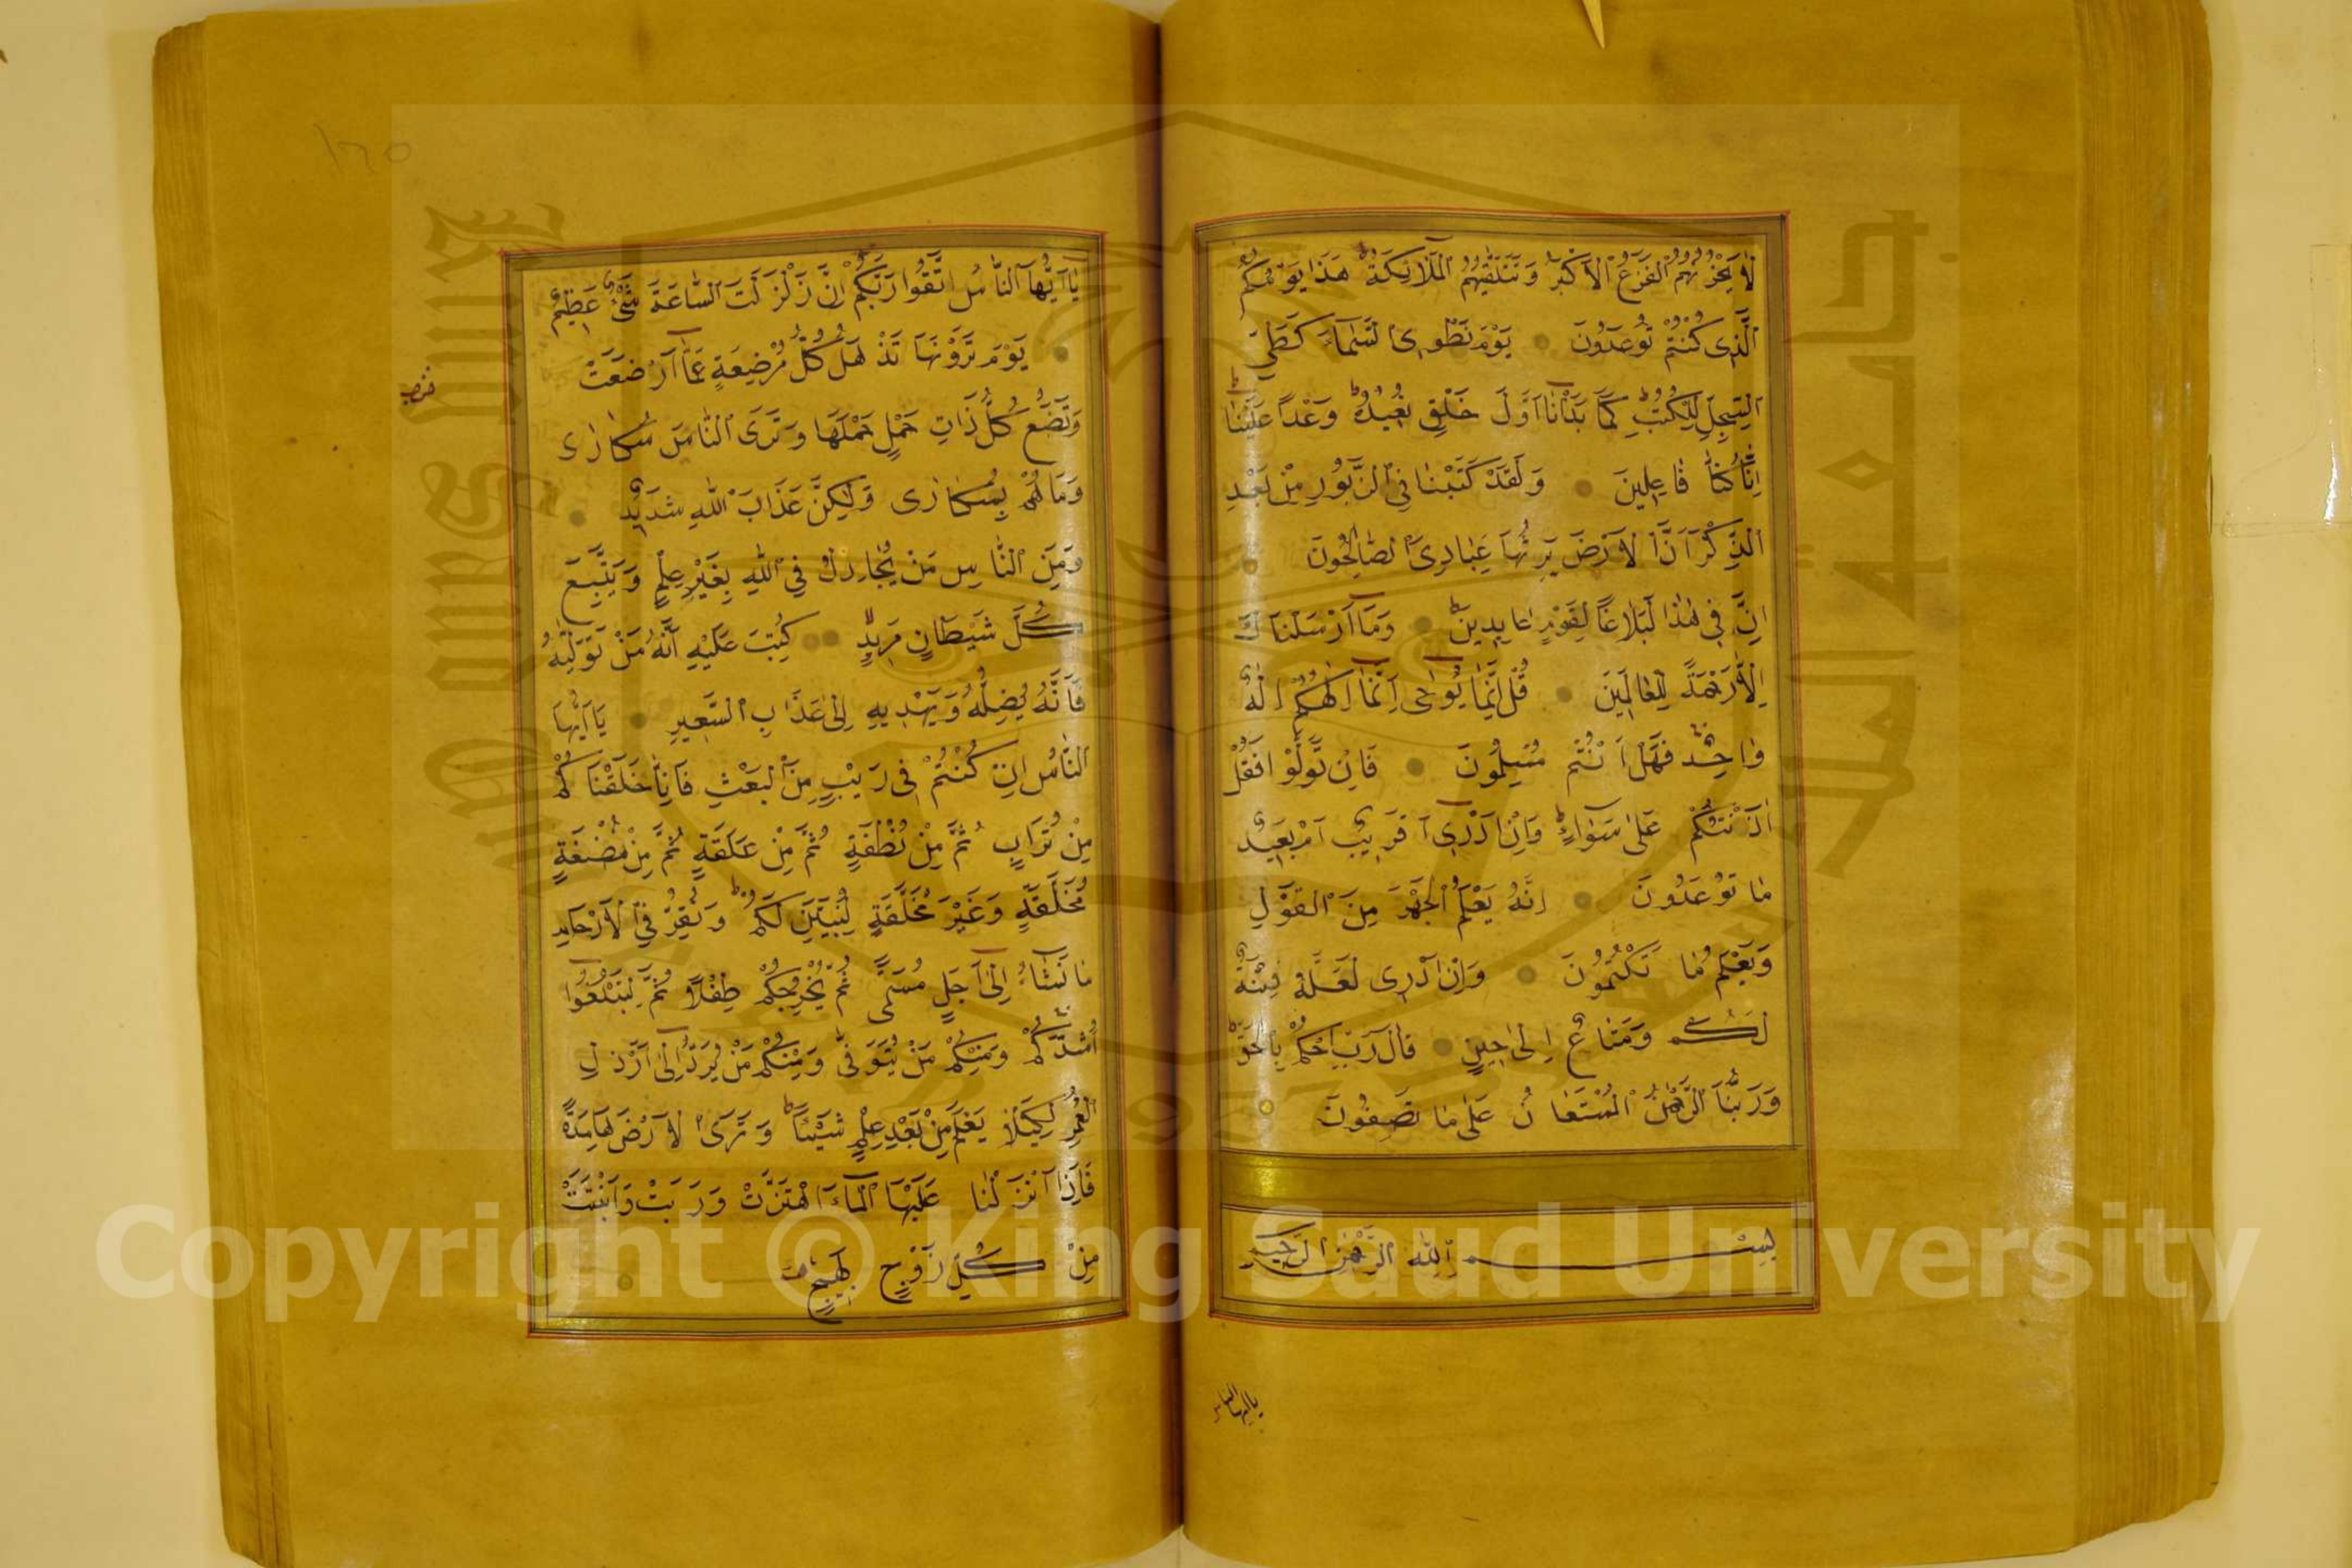 لَا يَحْزُنُهُمُ الْفَزَعُ الْأَكْبَرُ وَتَتَلَقَّيٰهُمُ الْمَلَآئِكَةُ ط هَذَا يَوْمُكُمُ
الَّذِى كُنْتُمْ تُوعَدُونَ يَوْمَ نَطْوِى السَّمَآءَ كَطَىِّ
السِّجِلِّ لِلْكُتُبِ ط كَمَا بَدَأْنَآ اَوَّلَ خَلْقٍ نُعِيدُهُ ط وَعْداً عَلَيْنَا ط
اِنَّا كُنَّا فَاعِلِينَ وَلَقَدْ كَتَبْنَا فِى الزَّبُورِ مِنْ بَعْدِ
الذِّكْرِ اَنَّ الْاَرْضَ يَرِثُهَا عِبَادِىَ الصَّالِحُونَ
اِنَّ فِى هٰذَا لَبَلَاغاً لِقَوْمٍ عَابِدِينَ ط وَمَآ اَرْسَلْنَاكَ
اِلَّا رَحْمَةً لِلْعَالَمِينَ قُلْ اِنَّمَا يُوحٰٓى اِلَىَّ اَنَّمَآ اِلٰهُكُمْ اِلٰهٌ
وَاحِدٌ فَهَلْ اَنْتُمْ مُسْلِمُونَ فَاِنْ تَوَلَّوْا فَقُلْ
اٰذَنْتُكُمْ عَلٰى سَوَآءٍ ط وَاِنْ اَدْرِىٓ اَقَرِيبٌ اَمْ بَعِيدٌ
مَا تُوعَدُونَ اِنَّهُ يَعْلَمُ الْجَهْرَ مِنَ الْقَوْلِ
وَيَعْلَمُ مَا تَكْتُمُونَ وَاِنْ اَدْرِى لَعَلَّهُ فِتْنَةٌ
لَكُمْ وَمَتَاعٌ اِلٰى حِينٍ قَالَ رَبِّ احْكُمْ بِالْحَقِّ ط
وَرَبُّنَا الرَّحْمٰنُ الْمُسْتَعَانُ عَلٰى مَا تَصِفُونَ
بِسْمِ اللّٰهِ الرَّحْمٰنِ الرَّحِيمِ
ياايها الناس
١٦٥
يَآ اَيُّهَا النَّاسُ اتَّقُوا رَبَّكُمْ اِنَّ زَلْزَلَتَ السَّاعَةِ شَىْءٌ عَظِيمٌ
يَوْمَ تَرَوْنَهَا تَذْهَلُ كُلُّ مُرْضِعَةٍ عَمَّآ اَرْضَعَتْ
وَتَضَعُ كُلُّ ذَاتِ حَمْلٍ حَمْلَهَا وَتَرَى النَّاسَ سُكَارٰى
وَمَا هُمْ بِسُكَارٰى وَلَكِنَّ عَذَابَ اللّٰهِ شَدِيدٌ
وَمِنَ النَّاسِ مَنْ يُجَادِلُ فِى اللّٰهِ بِغَيْرِ عِلْمٍ وَيَتَّبِعُ
كُلَّ شَيْطَانٍ مَرِيدٍ كُتِبَ عَلَيْهِ اَنَّهُ مَنْ تَوَلَّاهُ
فَاَنَّهُ يُضِلُّهُ وَيَهْدِيهِ اِلٰى عَذَابِ السَّعِيرِ يَآ اَيُّهَا
النَّاسُ اِنْ كُنْتُمْ فِى رَيْبٍ مِنَ الْبَعْثِ فَاِنَّا خَلَقْنَاكُمْ
مِنْ تُرَابٍ ثُمَّ مِنْ نُطْفَةٍ ثُمَّ مِنْ عَلَقَةٍ ثُمَّ مِنْ مُضْغَةٍ
مُخَلَّقَةٍ وَغَيْرِ مُخَلَّقَةٍ لِنُبَيِّنَ لَكُمْ ط وَنُقِرُّ فِى الْاَرْحَامِ
مَا نَشَآءُ اِلٰٓى اَجَلٍ مُسَمًّى ثُمَّ نُخْرِجُكُمْ طِفْلًا ثُمَّ لِتَبْلُغُوٓا
اَشُدَّكُمْ وَمِنْكُمْ مَنْ يُتَوَفّٰى وَمِنْكُمْ مَنْ يُرَدُّ اِلٰٓى اَرْذَلِ
الْعُمُرِ لِكَيْلَا يَعْلَمَ مِنْ بَعْدِ عِلْمٍ شَيْئًا ط وَتَرَى الْاَرْضَ هَامِدَةً
فَاِذَآ اَنْزَلْنَا عَلَيْهَا الْمَآءَ اهْتَزَّتْ وَرَبَتْ وَاَنْبَتَتْ
مِنْ كُلِّ زَوْجٍ بَهِيجٍ
Copyright © King Saud University